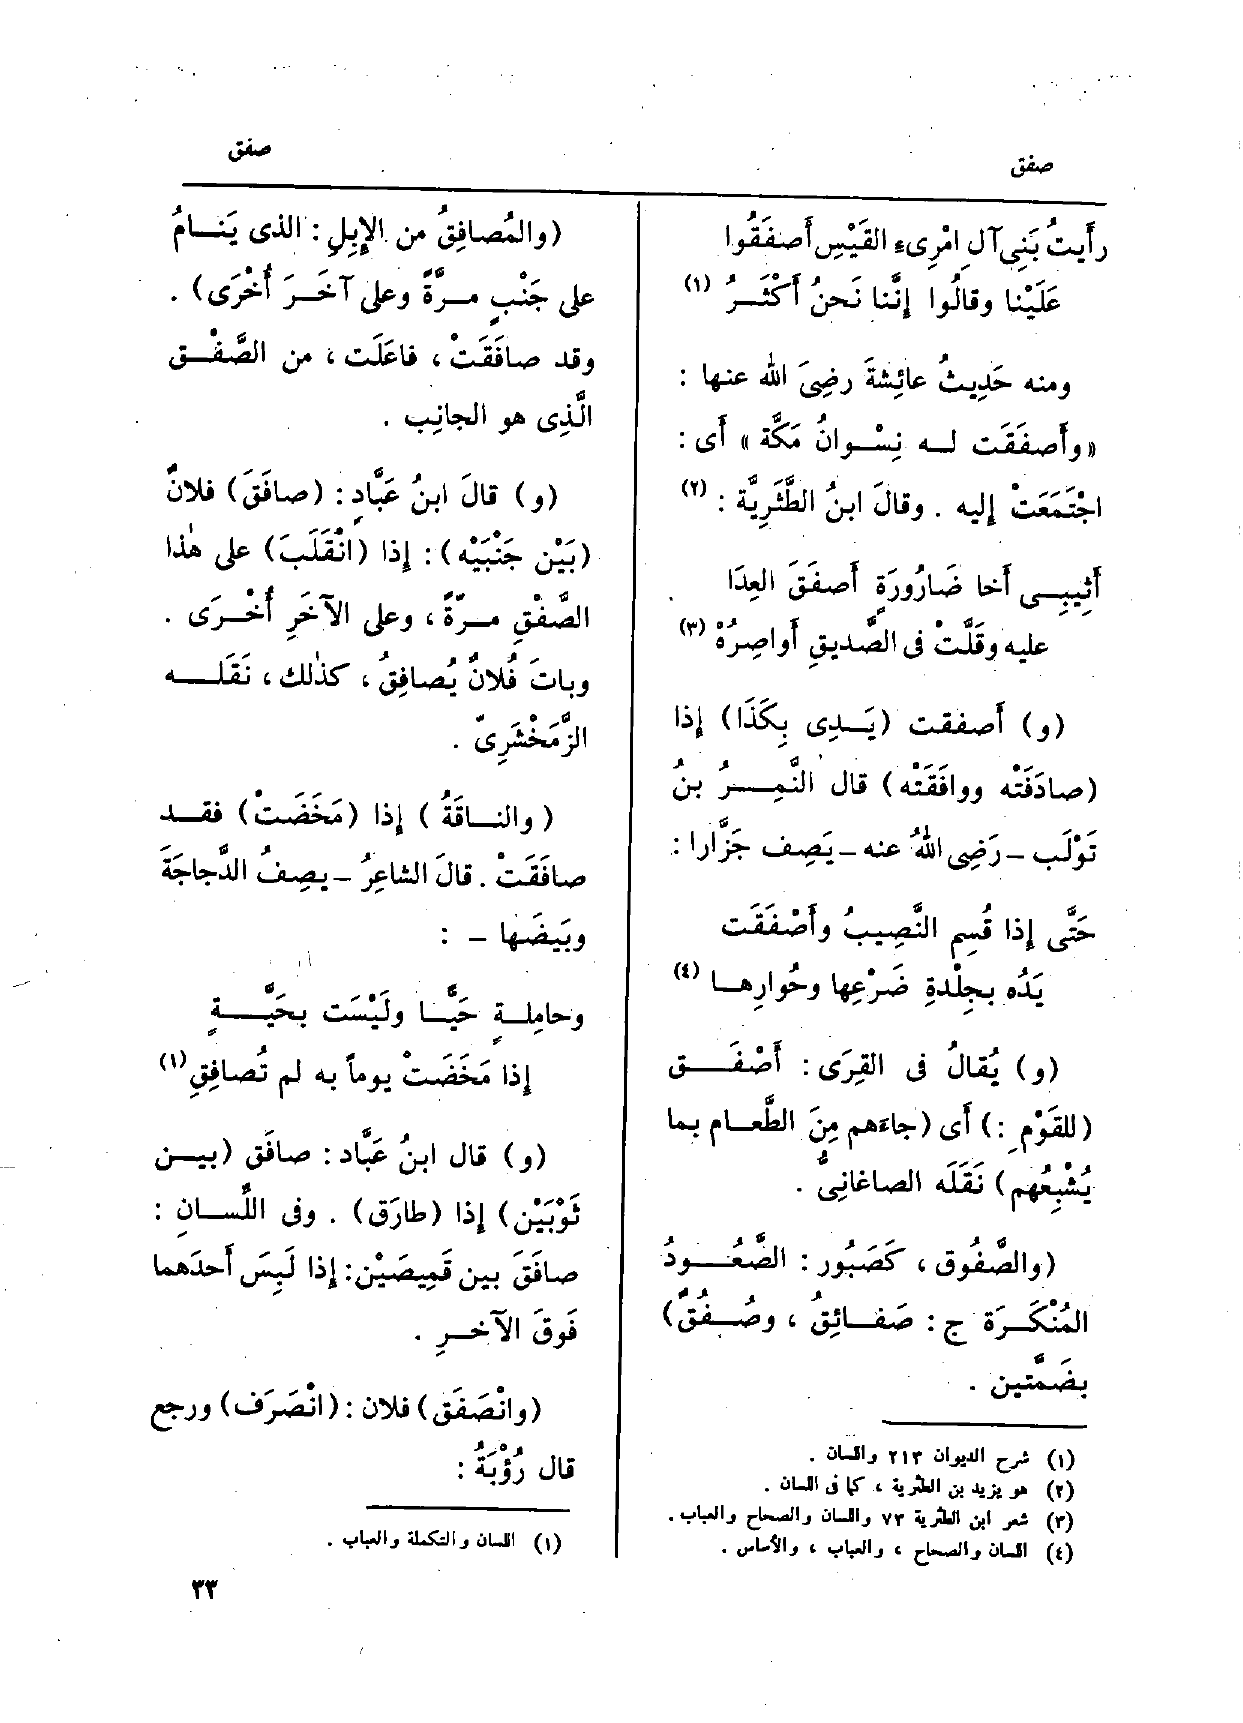 صفق
صفق
رأَيتُ بَنِى آلِ امْرِىءِ القَيْسِ أَصفَقُوا
عَلَيْنا وقالُوا إِنَّنا نَحنُ أَكْثَـــرُ (١)
ومنه حَدِيثُ عائِشةَ رضِىَ الله عنها :
« وأَصفَقَت لـــه نِسْـــوانُ مَكَّة » أَى :
اجْتَمَعَتْ إليه . وقالَ ابنُ الطَّثَرِيَّة : (٢)
أَثِيبِـــى أَخا ضَارُورَةٍ أَصفَقَ العِدَا
عليه وقَلَّتْ فى الصَّديقِ أَواصِرُهْ (٣)
(و) أَصفقت (يَـــدِى بِكَذَا) إذا
(صادَفَتْه ووافَقَتْه) قال النَّمِـــرُ بنُ
تَوْلَب – رَضِى اللهُ عنه – يَصِف جَزَّارا :
حَتَّى إِذا قُسِم النَّصِيبُ وأَصْفَقَت
يَدُه بجِلْدةِ ضَرْعِها وحُوارِهـــا (٤)
(و) يُقالُ فى القِرَى : أَصْفَـــق
(للقَوْمِ :) أَى (جاءَهم مِنَ الطَّعـــام بما
يُشْبِعُهم) نَقَلَه الصاغانِىُّ .
(والصَّفُوق ، كَصَبُور : الصَّعُـــودُ
المُنْكَـــرَة ج : صَفـــائِقُ ، وصُـــفُقٌ)
بضَمَّتين .
(١) شرح الديوان ٢١٣ واللسان .
(٢) هو يزيد بن الطثرية ، كما فى اللسان .
(٣) شعر ابن الطثرية ٧٣ واللسان والصحاح والعباب .
(٤) اللسان والصحاح ، والعباب ، والأساس .
(والمُصافِقُ من الإِبِلِ : الذى يَنـــامُ
على جَنْبٍ مـــرَّةً وعلى آخَـــرَ أُخْرَى) .
وقد صافَقَتْ ، فاعَلَت ، من الصَّفْـــق
الَّذِى هو الجانِب .
(و) قالَ ابنُ عَبَّادٍ : (صافَقَ) فلانٌ
(بَيْن جَنْبَيْه) : إذا (انْقَلَبَ) على هٰذا
الصَّفْقِ مـــرّةً ، وعلى الآخَرِ أُخْـــرَى .
وباتَ فُلانٌ يُصافِقُ ، كذٰلك ، نَقَلـــه
الزَّمَخْشَرِىّ .
(والنـــاقَةُ) إذا (مَخَضَتْ) فقـــد
صافَقَتْ . قالَ الشاعِرُ – يصِفُ الدَّجاجَةَ
وبَيضَها – :
وحامِلـــةٍ حَيًّـــا ولَيْسَت بحَيَّـــةٍ
إذا مَخَضَتْ يوماً به لم تُصافِقِ (١)
(و) قال ابنُ عَبَّاد : صافَق (بيـــن
ثَوْبَيْن) إذا (طارَق) . وفى اللِّســـانِ :
صافَقَ بين قَمِيصَيْن : إذا لَبِسَ أَحدَهما
فَوقَ الآخـــرِ .
(وانْصَفَق) فلان : (انْصَرَف) ورجع
قال رُؤْبَةُ :
(١) اللسان والتكملة والعباب .
٣٣